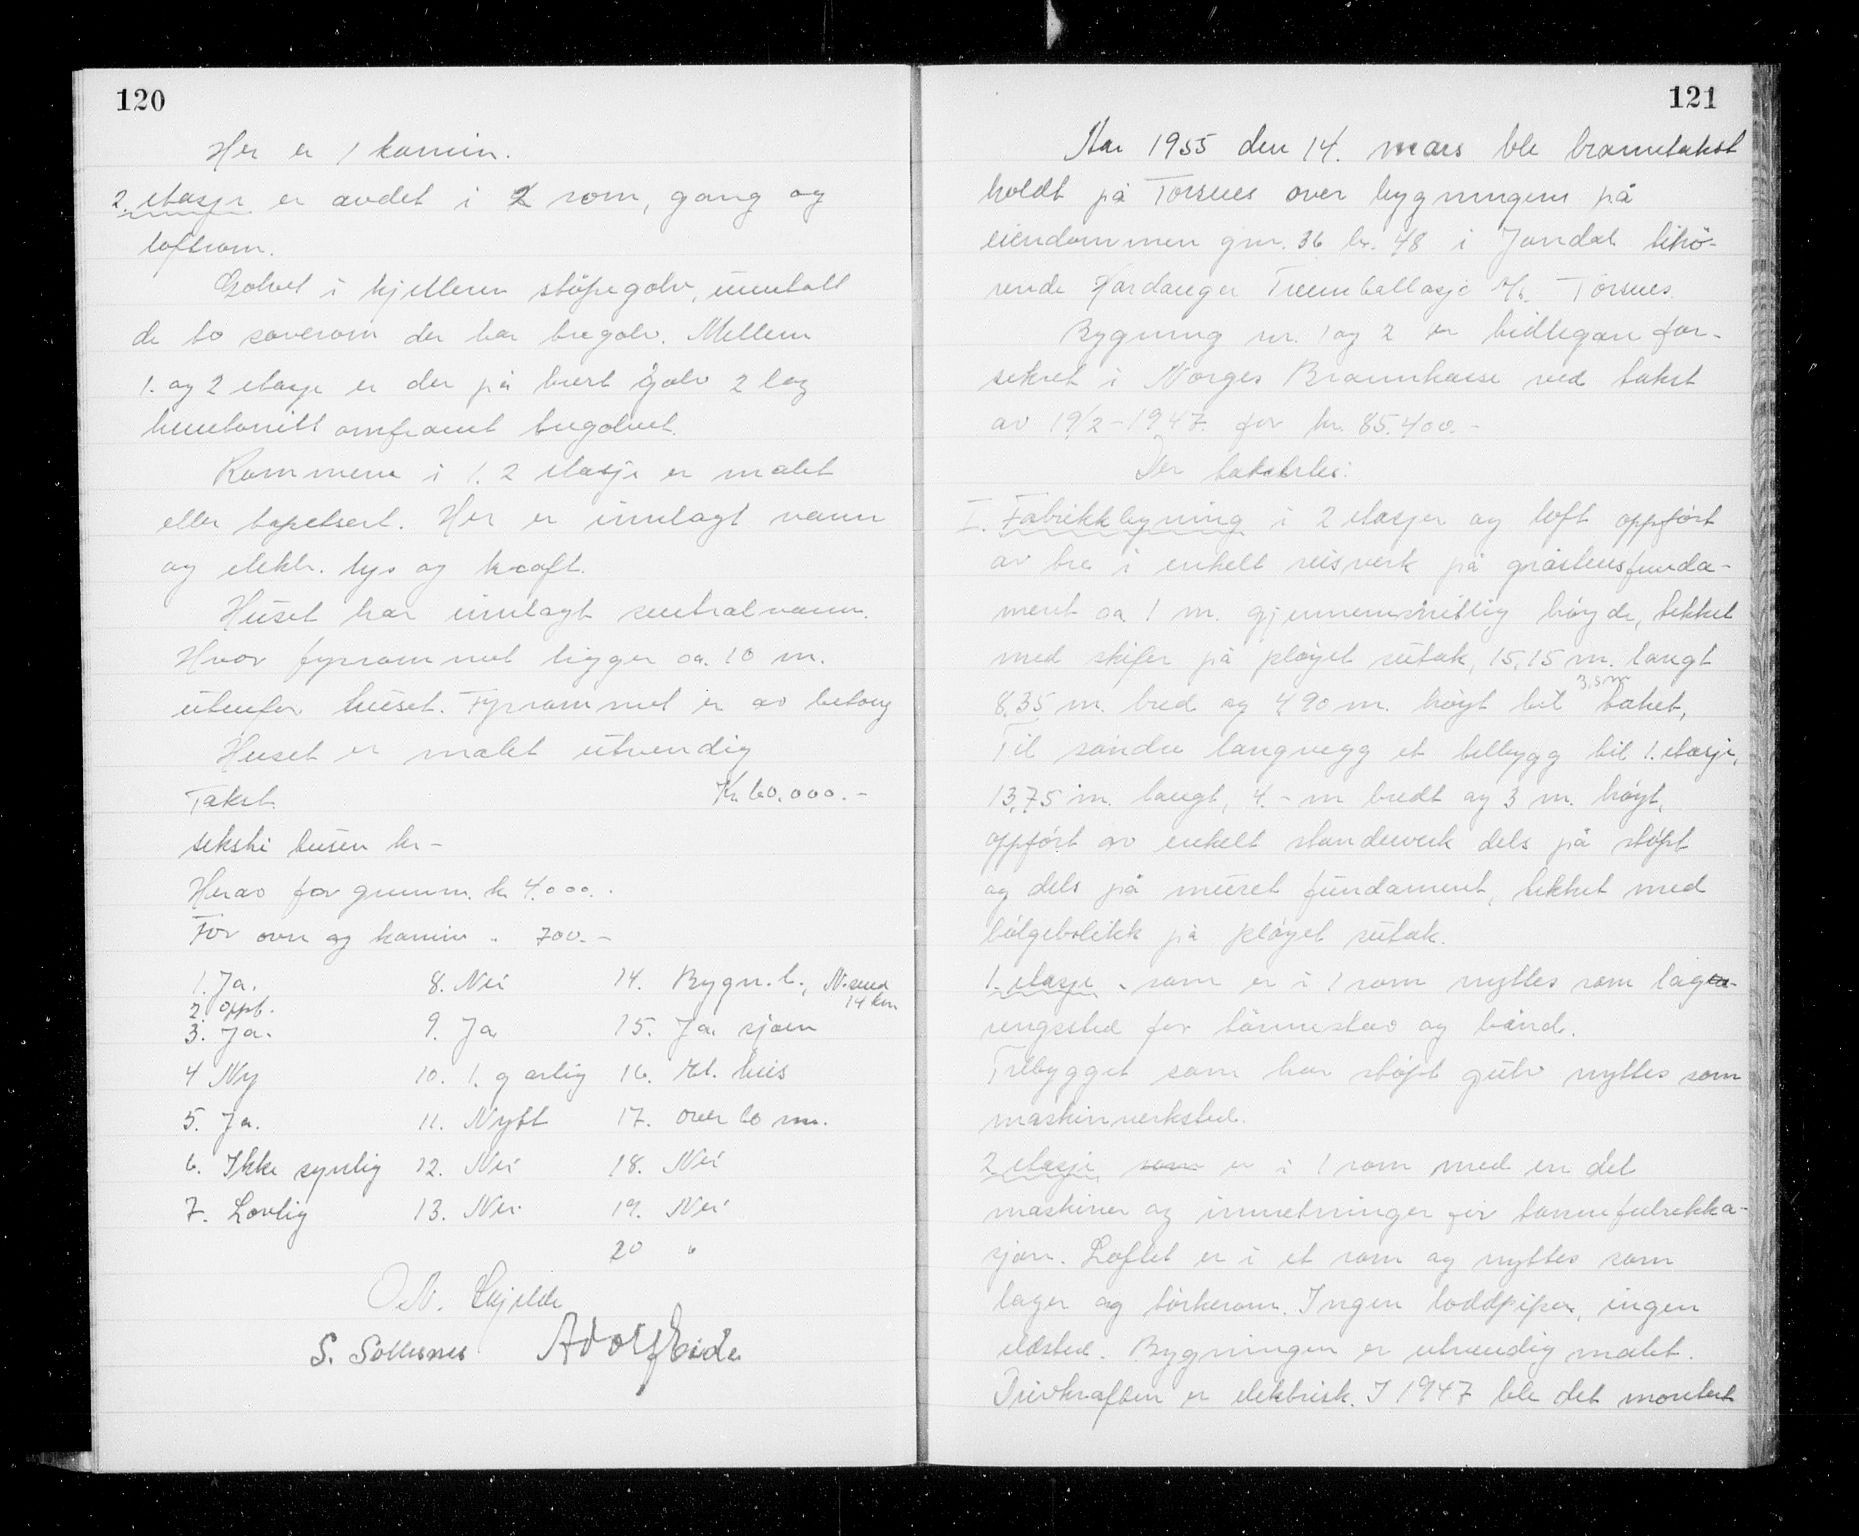 120
Her er 1 kamin.
2. etasje er avdet i 2 rom, gang og
loftrom.
Golvet i kjelleren støpegolv, unntatt
de to soverom der har tregolv. Mellem
1. og 2 etasje er der på hvert golv 2 lag
huntonitt omframt tregolvet.
Rommene i 1. 2 etasje er malt
eller tapetsert. Her er innlagt vann
og elektr. lys og kraft.
Huset har innlagt sentralvarm.
Hvor fyrrommet ligger ca. 10 m.
utenfor huset. Fyrrommet er av betong
Huset er malt utvendig
Takst. Kr. 60.000.-
seksti tusen kr -
Herav for grunnm. kr 4.000.-
For ovn og kamin - 700.-
1. Ja. 8. Nei 14. Bygn. b., N.sund 14 km
2. Oppt.
3. Ja. 9. Ja 15. Ja sjøen
4 Ny 10. 1. g årlig 16. El. hus
5. Ja. 11. Nytt 17. over 60 m.
6. Ikke synlig 12. Nei 18. Nei
7. Lovlig 13. Nei 19. Nei
20 "
S. Sollesnes Adolf Eide
121
Aar 1955 den 14. mars ble branntakst
holdt på Torsnes over bygningene på
eiendommen gnr. 36 br. 48 i Jondal tilhø-
rende Hardanger Treemballasje A/S. Torsnes.
Bygning nr. 1 og 2 er tidlegare for-
sekret i Norges Brannkasse ved takst
av 19/2-1947. for kr. 85.400.-
Der takstertes:
I. Fabrikkbygning i 2 etasjer og loft oppført
av tre i enkelt reisverk på gråstensfunda-
ment ca 1 m. gjennemsnittlig høyde, tekket
med skifer på pløyet sutak, 15,15 m. langt
8.35 m. bred og 4,90 m. høyt til 3,5 m taket,
Til søndre langvegg et tilbygg til 1. etasje,
13,75 m. langt, 4.- m bredt og 3 m. høyt,
oppført av enkelt standerverk dels på støpt
og dels på muret fundament, tekket med
bølgeblikk på pløyet sutak.
1. etasje som er i 1 rom nyttes som lag-
ringssted for tønnestav og bånd.
Tilbygget som har støpt gulv nyttes som
maskinverksted.
2 etasje som er i 1 rom med en del
maskiner og innretninger for tønnefabrikka-
sjon. Loftet er i et rom og nyttes som
lager og tørkerom. Ingen loddpiper, ingen
ildsted. Bygningen er utvendig malt.
Drivkraften er elektrisk. I 1947 ble det montert